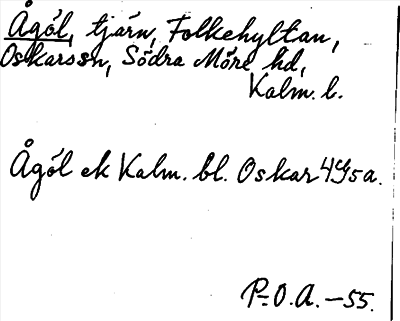 Ågöl, tjärn, Folkehyltan,
Oskars sn, Södra Möre hd,
Kalm. l.
Ågöl ek Kalm. bl. Oskar 4G5a.
P-O.A. -55.